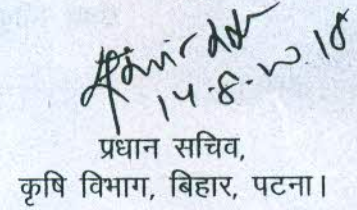 14.8.2018
प्रधान सचिव,
कृषि विभाग, बिहार, पटना।